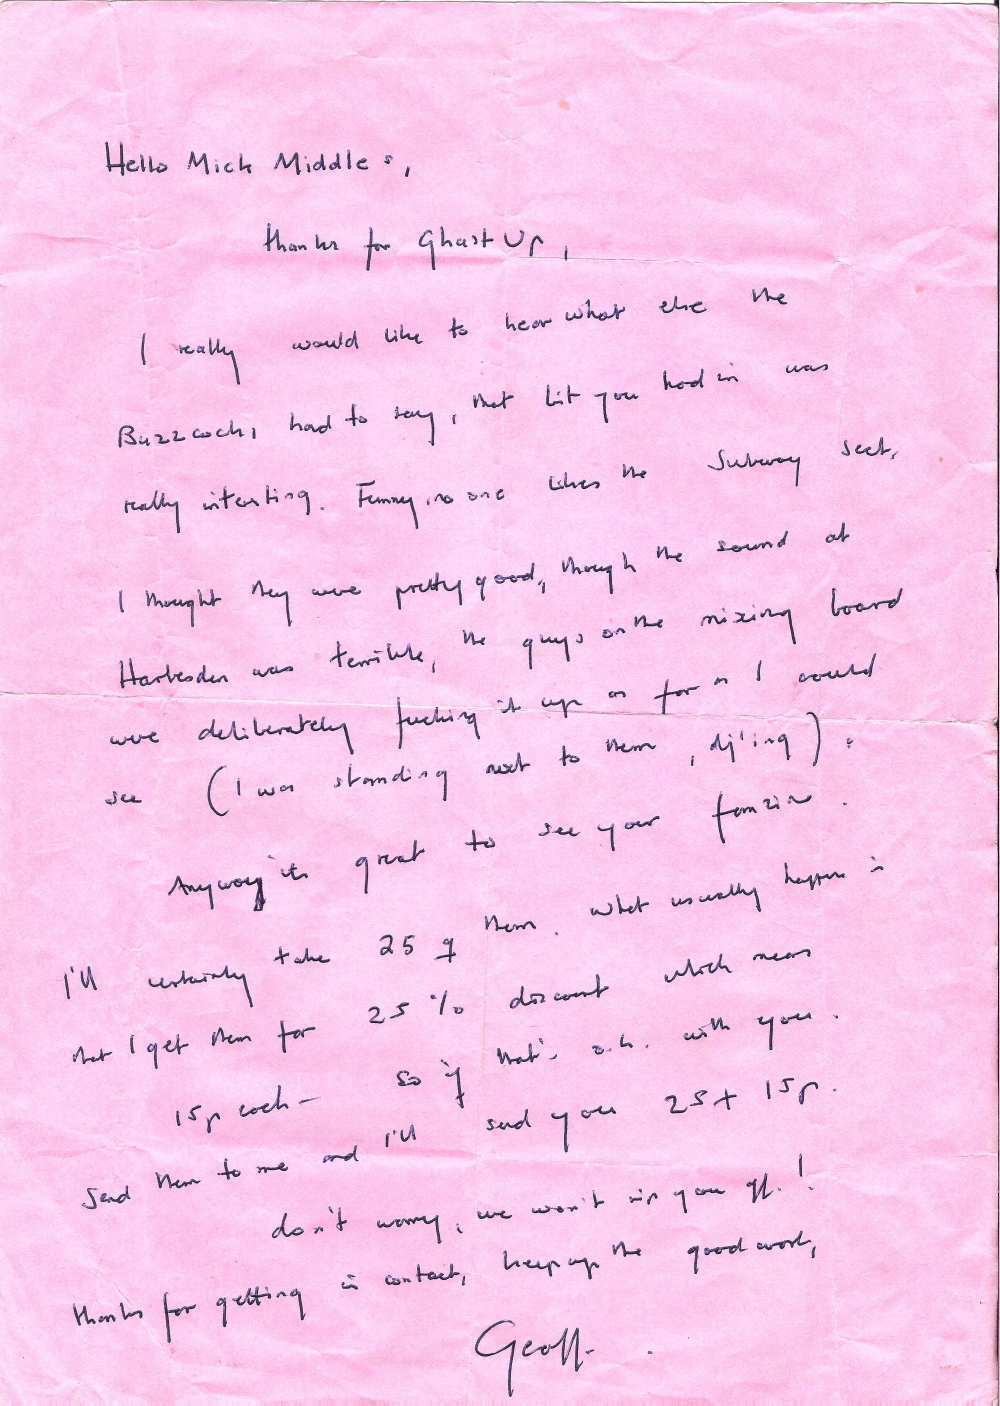 Hello Mick Middles,
thanks for Ghast Up,
I really would like to hear what else the
Buzzcocks had to say, that bit you had in was
really intersting. Funny, no one likes the Subway sect,
I thought they were pretty good, though the sound at
Harlesden was terrible, the guys on the mixing board
were deliberately fucking it up as far as I could
see (I was standing next to them, dj'ing).
Anyway its great to see your fanzine.
I'll certainly take 25 of them. what usually happens is
that I get them for 25% discount which means
15p each - so if that's o.k. with you.
Send them to me and I'll send you 25 x 15p.
don't worry, we won't rip you off.!
thanks for getting in contact, keep up the good work,
Geoff.